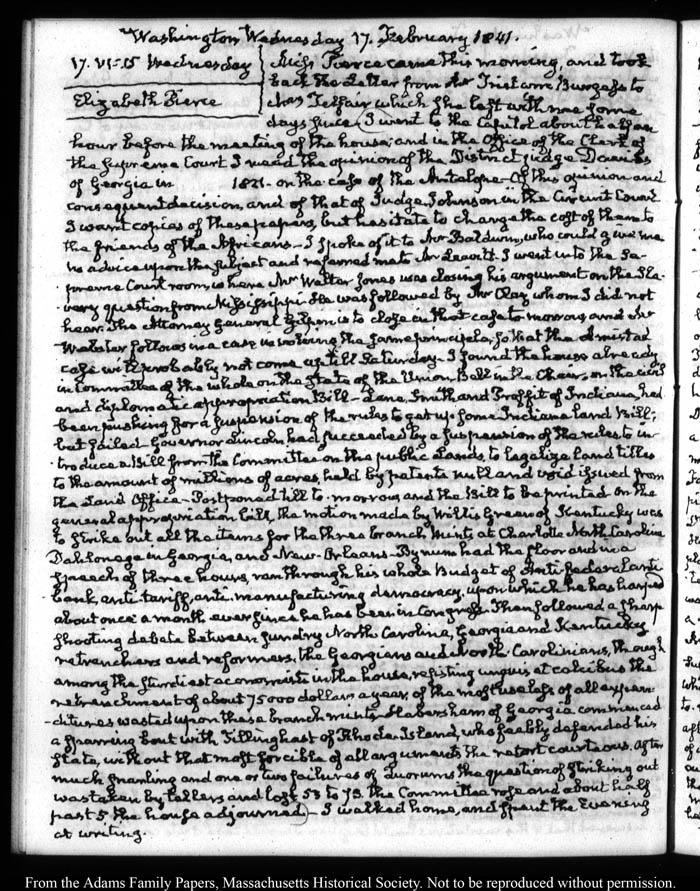 Washington Wednesday 17. February 1841.
17. VI:15 Wednesday
Elizabeth Pierce
Miss Pierce came this morning, and took
back the Letter from Mr Tristam Burges to
Chas Telfair which she left with me some
days since. (I went to the Capitol about half an
hour before the meeting of the house; and in the Office of the Clerk of
the Supreme Court I read the opinion of the District judge Davies
of Georgia in 1821. on the case of the Antelope - Of this opinion and
consequent decision, and of that of Judge Johnson in the Circuit Court
I want copies of these papers, but hesitate to charge the cost of them to
the friends of the Africans - I spoke of it to Mr Baldwin, who could give me
no advice upon the subject and referred me to Mr Leavitt. I went into the Su-
preme Court room, where Mr Walter Jones was closing his argument on the Sla-
very question from Mississippi - He was followed by Mr Clay whom I did not
hear. The Attorney General Gilpin is to close in that case to-morrow and Mr
Webster follows in a case involving the same principle, so that the Amistad
case will probably not come up till Saturday - I found the house already
in Committee of the whole on the State of the Union, Bell in the Chair, on the civil
and diplomatic appropriation Bill - Lane, Smith and Proffit of Indiana, had
been pushing for a suspension of the rules to get up some Indiana land Bill;
but failed. Governor Lincoln had succeeded by a suspension of the rules to in-
troduce a Bill from the Committee on the public Lands, to legalize land titles
to the amount of millions of acres, held by patents null and void issued from
the Land Office - Postponed till to-morrow, and the Bill to be printed. On the
general appropriation bill, the motion made by Willis Green of Kentucky was
to strike out all the items for the three branch Mints at Charlotte North Carolina
Dahlonega in Georgia, and New-Orleans - Bynum had the floor and in a
speech of three hours, ran through his whole Budget of Anti federal anti
bank, anti tariff, anti-manufacturing democracy, upon which he has harped
about once a month ever since he has been in Congress. Then followed a sharp
shooting debate between sundry North Carolina, Georgia and Kentucky
retrenchers and reformers, the Georgians and North Carolinians, though
among the sturdiest economists in the house, resisting unguis et calcibus the
retrenchment of about 75000 dollars a year, of the most useless of all expen-
ditures wasted upon these branch mints. Habersham of Georgia commenced
a sparring bout with Tillinghast of Rhode-Island, who feebly defended his
State, without that most forcible of all arguments the retort courteous. After
much snarling and one or two failures of Quorums the question of striking out
was taken by tellers and lost 53 to 73. the Committee rose and about half
past 5 the house adjourned) - I walked home, and spent the Evening
at writing.
From the Adams Family Papers, Massachusetts Historical Society. Not to be reproduced without permission.